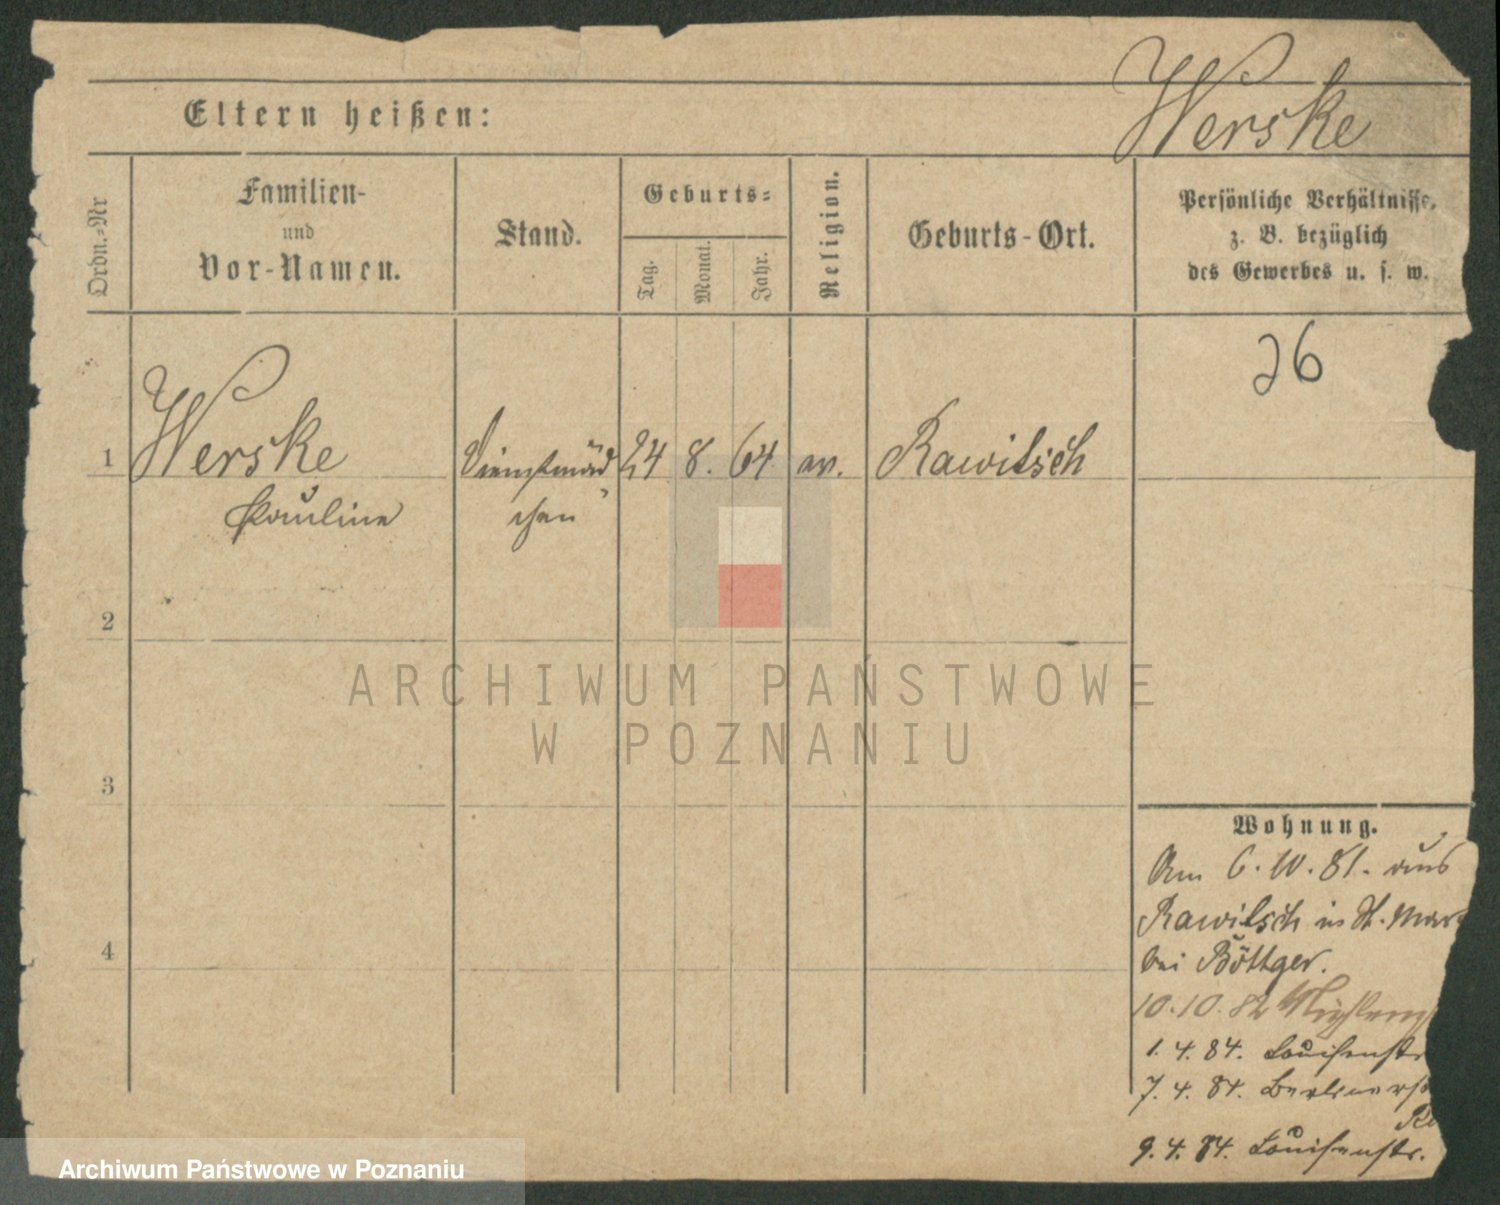 Werske
Eltern heißen:
Ordn.=Nr
Familien-
und
Vor-Namen.
Stand.
Geburts=
Tag.
Monat.
Jahr.
Religion.
Geburts-Ort.
Persönliche Verhältnisse,
z. B. bezüglich
des Gewerbes u. s. w.
26
1
Werske
Pauline
Dienstmäd
chen
24
8.
64
ev.
Rawitsch
2
3
4
Wohnung.
Am 6.10.81. aus
Rawitsch in St. Mar
bei Böttger.
10.10.82
1.4.84. Louisenstr
7.4.84. Berlinerst
9.4.84. Louisenstr.
ARCHIWUM PAŃSTWOWE
W POZNANIU
Archiwum Państwowe w Poznaniu